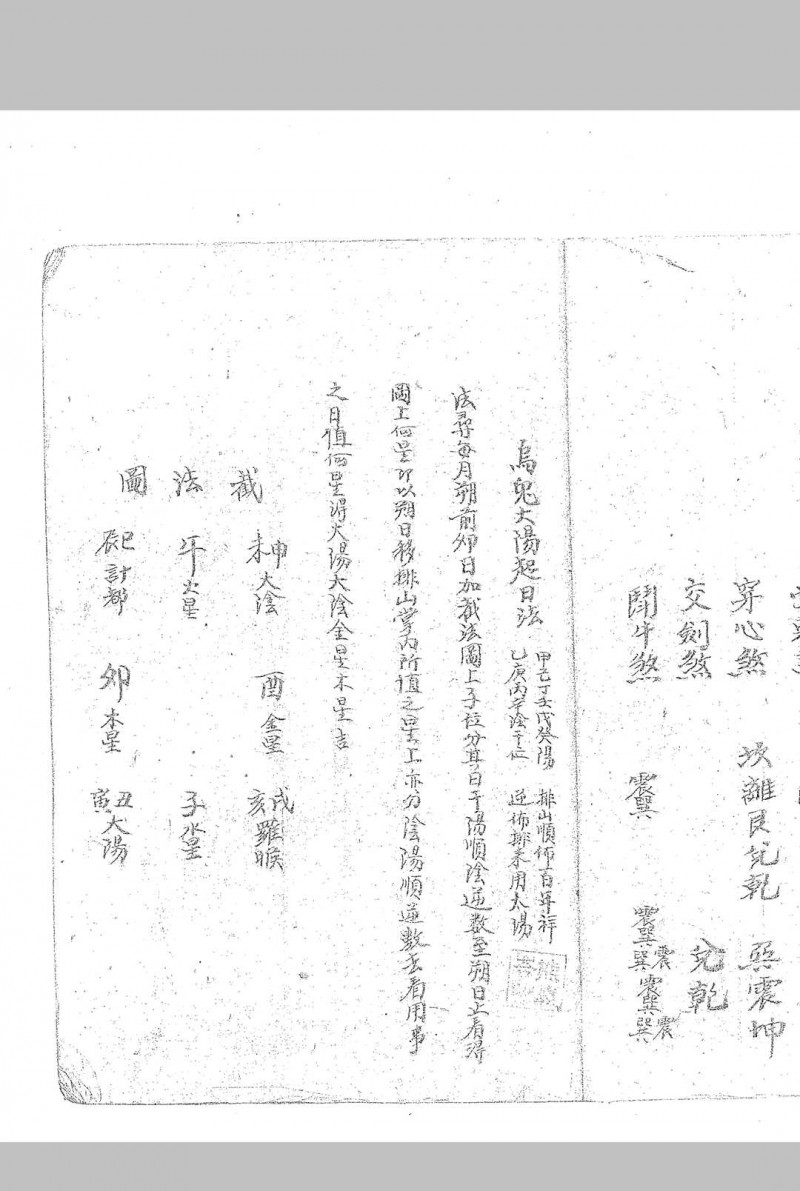 穿心煞 坎離艮兌乾 巽震坤
交劍煞 兌乾
鬪牛煞 震巽 震巽巽震震巽巽震
烏兔太陽起日法 甲己丁壬戊癸陽 排山順佈百年祥
乙庚丙辛陰干位 逆佈排來用太陽
法尋每月朔前卯日加截法圖上子位分其日干陽順陰逆數至朔日上看得
圖上何星即以朔日移排山掌內所值之星上亦分陰陽順逆數去看用事
之日值何星得太陽太陰金星木星吉
截法圖
未申太陰 酉金星 戌亥羅睺
午火星 子水星
辰巳計都 卯木星 丑寅太陽